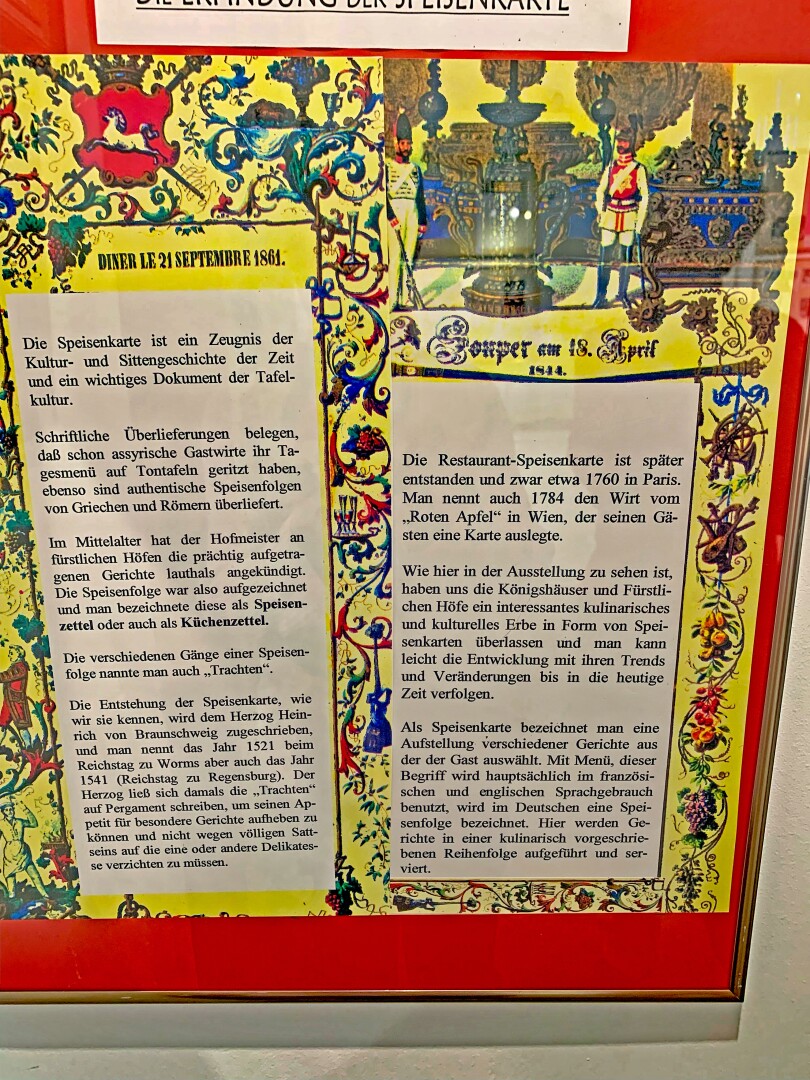 DIE ERFINDUNG DER SPEISENKARTE
DINER LE 21 SEPTEMBRE 1861.
Die Speisenkarte ist ein Zeugnis der
Kultur- und Sittengeschichte der Zeit
und ein wichtiges Dokument der Tafel-
kultur.
Schriftliche Überlieferungen belegen,
daß schon assyrische Gastwirte ihr Ta-
gesmenü auf Tontafeln geritzt haben,
ebenso sind authentische Speisenfolgen
von Griechen und Römern überliefert.
Im Mittelalter hat der Hofmeister an
fürstlichen Höfen die prächtig aufgetra-
genen Gerichte lauthals angekündigt.
Die Speisenfolge war also aufgezeichnet
und man bezeichnete diese als Speisen-
zettel oder auch als Küchenzettel.
Die verschiedenen Gänge einer Speisen-
folge nannte man auch „Trachten".
Die Entstehung der Speisenkarte, wie
wir sie kennen, wird dem Herzog Hein-
rich von Braunschweig zugeschrieben,
und man nennt das Jahr 1521 beim
Reichstag zu Worms aber auch das Jahr
1541 (Reichstag zu Regensburg). Der
Herzog ließ sich damals die „Trachten"
auf Pergament schreiben, um seinen Ap-
petit für besondere Gerichte aufheben zu
können und nicht wegen völligen Satt-
seins auf die eine oder andere Delikates-
se verzichten zu müssen.
Souper am 18. April
1844.
Die Restaurant-Speisenkarte ist später
entstanden und zwar etwa 1760 in Paris.
Man nennt auch 1784 den Wirt vom
„Roten Apfel" in Wien, der seinen Gä-
sten eine Karte auslegte.
Wie hier in der Ausstellung zu sehen ist,
haben uns die Königshäuser und Fürstli-
chen Höfe ein interessantes kulinarisches
und kulturelles Erbe in Form von Spei-
senkarten überlassen und man kann
leicht die Entwicklung mit ihren Trends
und Veränderungen bis in die heutige
Zeit verfolgen.
Als Speisenkarte bezeichnet man eine
Aufstellung verschiedener Gerichte aus
der der Gast auswählt. Mit Menü, dieser
Begriff wird hauptsächlich im französi-
schen und englischen Sprachgebrauch
benutzt, wird im Deutschen eine Spei-
senfolge bezeichnet. Hier werden Ge-
richte in einer kulinarisch vorgeschrie-
benen Reihenfolge aufgeführt und ser-
viert.